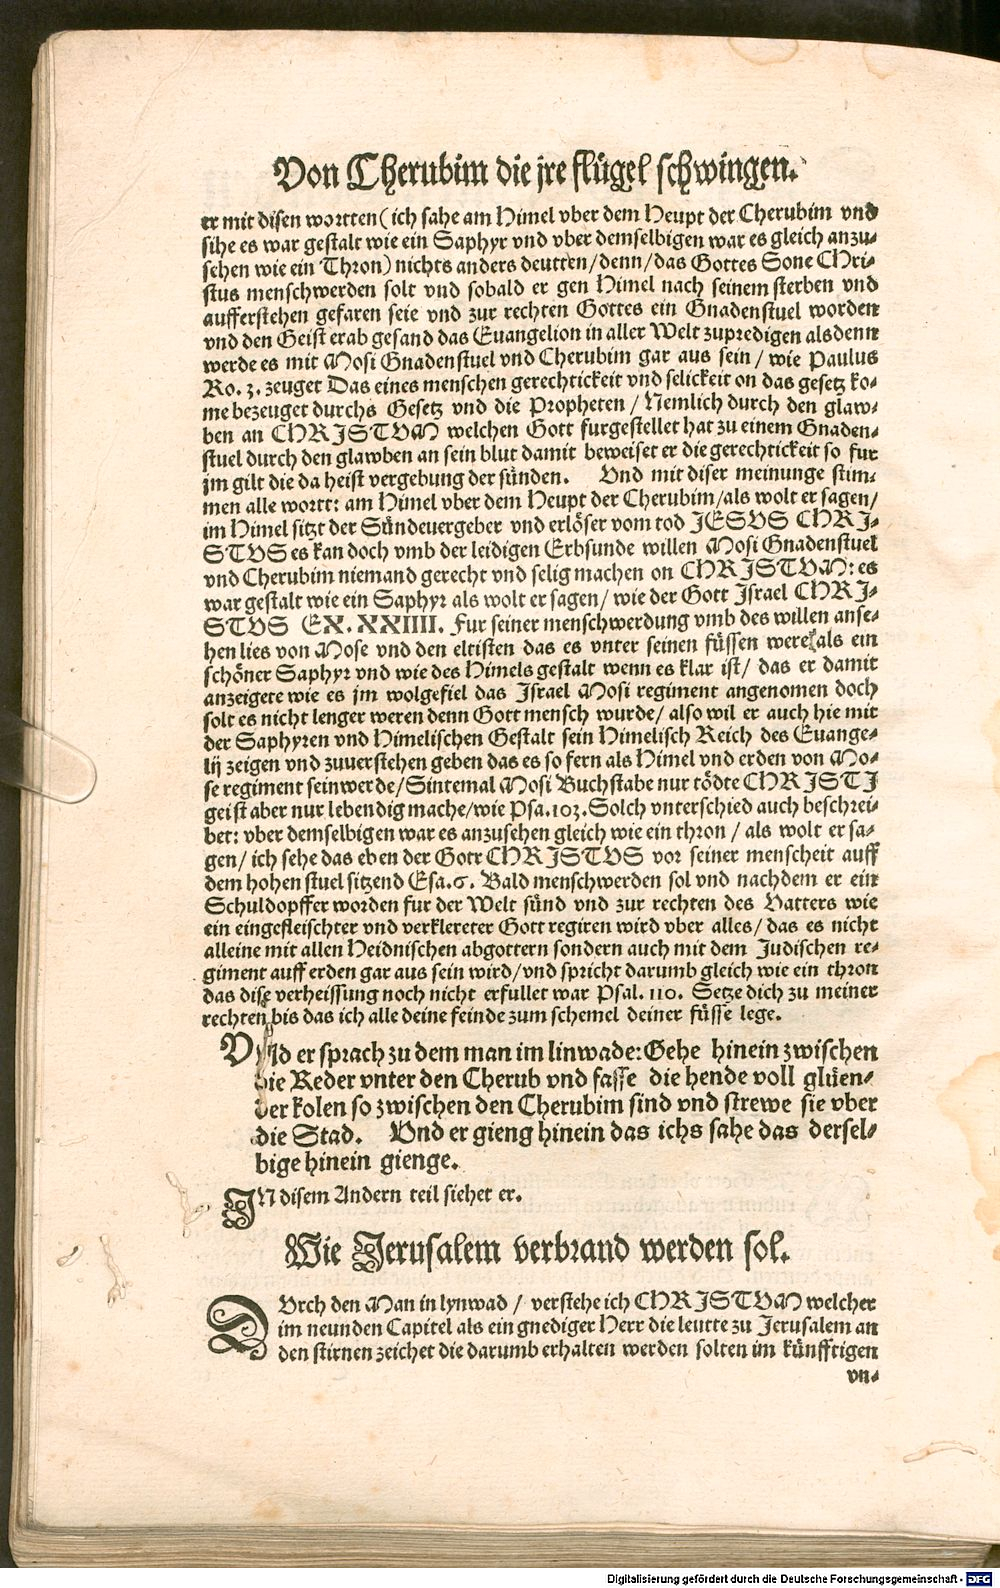 Von Cherubim die jre flügel schwingen.
er mit disen wortten (ich sahe am Himel vber dem Heupt der Cherubim vnd
sihe es war gestalt wie ein Saphyr vnd vber demselbigen war es gleich anzu-
sehen wie ein Thron) nichts anders deutten/denn/das Gottes Sone Chri-
stus menschwerden solt vnd sobald er gen Himel nach seinem sterben vnd
aufferstehen gefaren seie vnd zur rechten Gottes ein Gnadenstuel worden
vnd den Geist erab gesand das Euangelion in aller Welt zupredigen alsdenn
werde es mit Mosi Gnadenstuel vnd Cherubim gar aus sein / wie Paulus
Ro. 3. zeuget Das eines menschen gerechtickeit vnd selickeit on das gesetz ko-
me bezeuget durchs Gesetz vnd die Propheten / Nemlich durch den glaw-
ben an CHRISTVM welchen Gott furgestellet hat zu einem Gnaden-
stuel durch den glawben an sein blut damit beweiset er die gerechtickeit so fur
jm gilt die da heist vergebung der sünden. Vnd mit diser meinunge stim-
men alle wortt: am Himel vber dem Heupt der Cherubim/als wolt er sagen/
im Himel sitzt der Sündeuergeber vnd erlöser vom tod JESVS CHRI-
STVS es kan doch vmb der leidigen Erbsunde willen Mosi Gnadenstuel
vnd Cherubim niemand gerecht vnd selig machen on CHRISTVM: es
war gestalt wie ein Saphyr als wolt er sagen/ wie der Gott Israel CHRI-
STVS EX. XXIIII. Fur seiner menschwerdung vmb des willen anse-
hen lies von Mose vnd den eltisten das es vnter seinen füssen were als ein
schöner Saphyr vnd wie des Himels gestalt wenn es klar ist/ das er damit
anzeigete wie es jm wolgefiel das Israel Mosi regiment angenomen doch
solt es nicht lenger weren denn Gott mensch wurde/ also wil er auch hie mit
der Saphyren vnd Himelischen Gestalt sein Himelisch Reich des Euange-
lij zeigen vnd zuuerstehen geben das es so fern als Himel vnd erden von Mo-
se regiment seinwerde/Sintemal Mosi Buchstabe nur tödte CHRISTI
geist aber nur lebendig mache/wie Psa.103. Solch vnterschied auch beschrei-
bet: vber demselbigen war es anzusehen gleich wie ein thron / als wolt er sa-
gen/ ich sehe das eben der Gott CHRISTVS vor seiner menscheit auff
dem hohen stuel sitzend Esa.6. Bald menschwerden sol vnd nachdem er ein
Schuldopffer worden fur der Welt sünd vnd zur rechten des Vatters wie
ein eingefleischter vnd verklereter Gott regiren wird vber alles/ das es nicht
alleine mit allen Heidnischen abgottern sondern auch mit dem Judischen re-
giment auff erden gar aus sein wird/vnd spricht darumb gleich wie ein thron
das dise verheissung noch nicht erfullet war Psal. 110. Setze dich zu meiner
rechten bis das ich alle deine feinde zum schemel deiner füsse lege.
Vnd er sprach zu dem man im linwade: Gehe hinein zwischen
die Reder vnter den Cherub vnd fasse die hende voll glüen-
der kolen so zwischen den Cherubim sind vnd strewe sie vber
die Stad. Vnd er gieng hinein das ichs sahe das dersel-
bige hinein gienge.
IN disem Andern teil siehet er.
Wie Jerusalem verbrand werden sol.
DVrch den Man in lynwad / verstehe ich CHRISTVM welcher
im neunden Capitel als ein gnediger Herr die leutte zu Jerusalem an
den stirnen zeichet die darumb erhalten werden solten im künfftigen
vn-
Digitalisierung gefördert durch die Deutsche Forschungsgemeinschaft - DFG